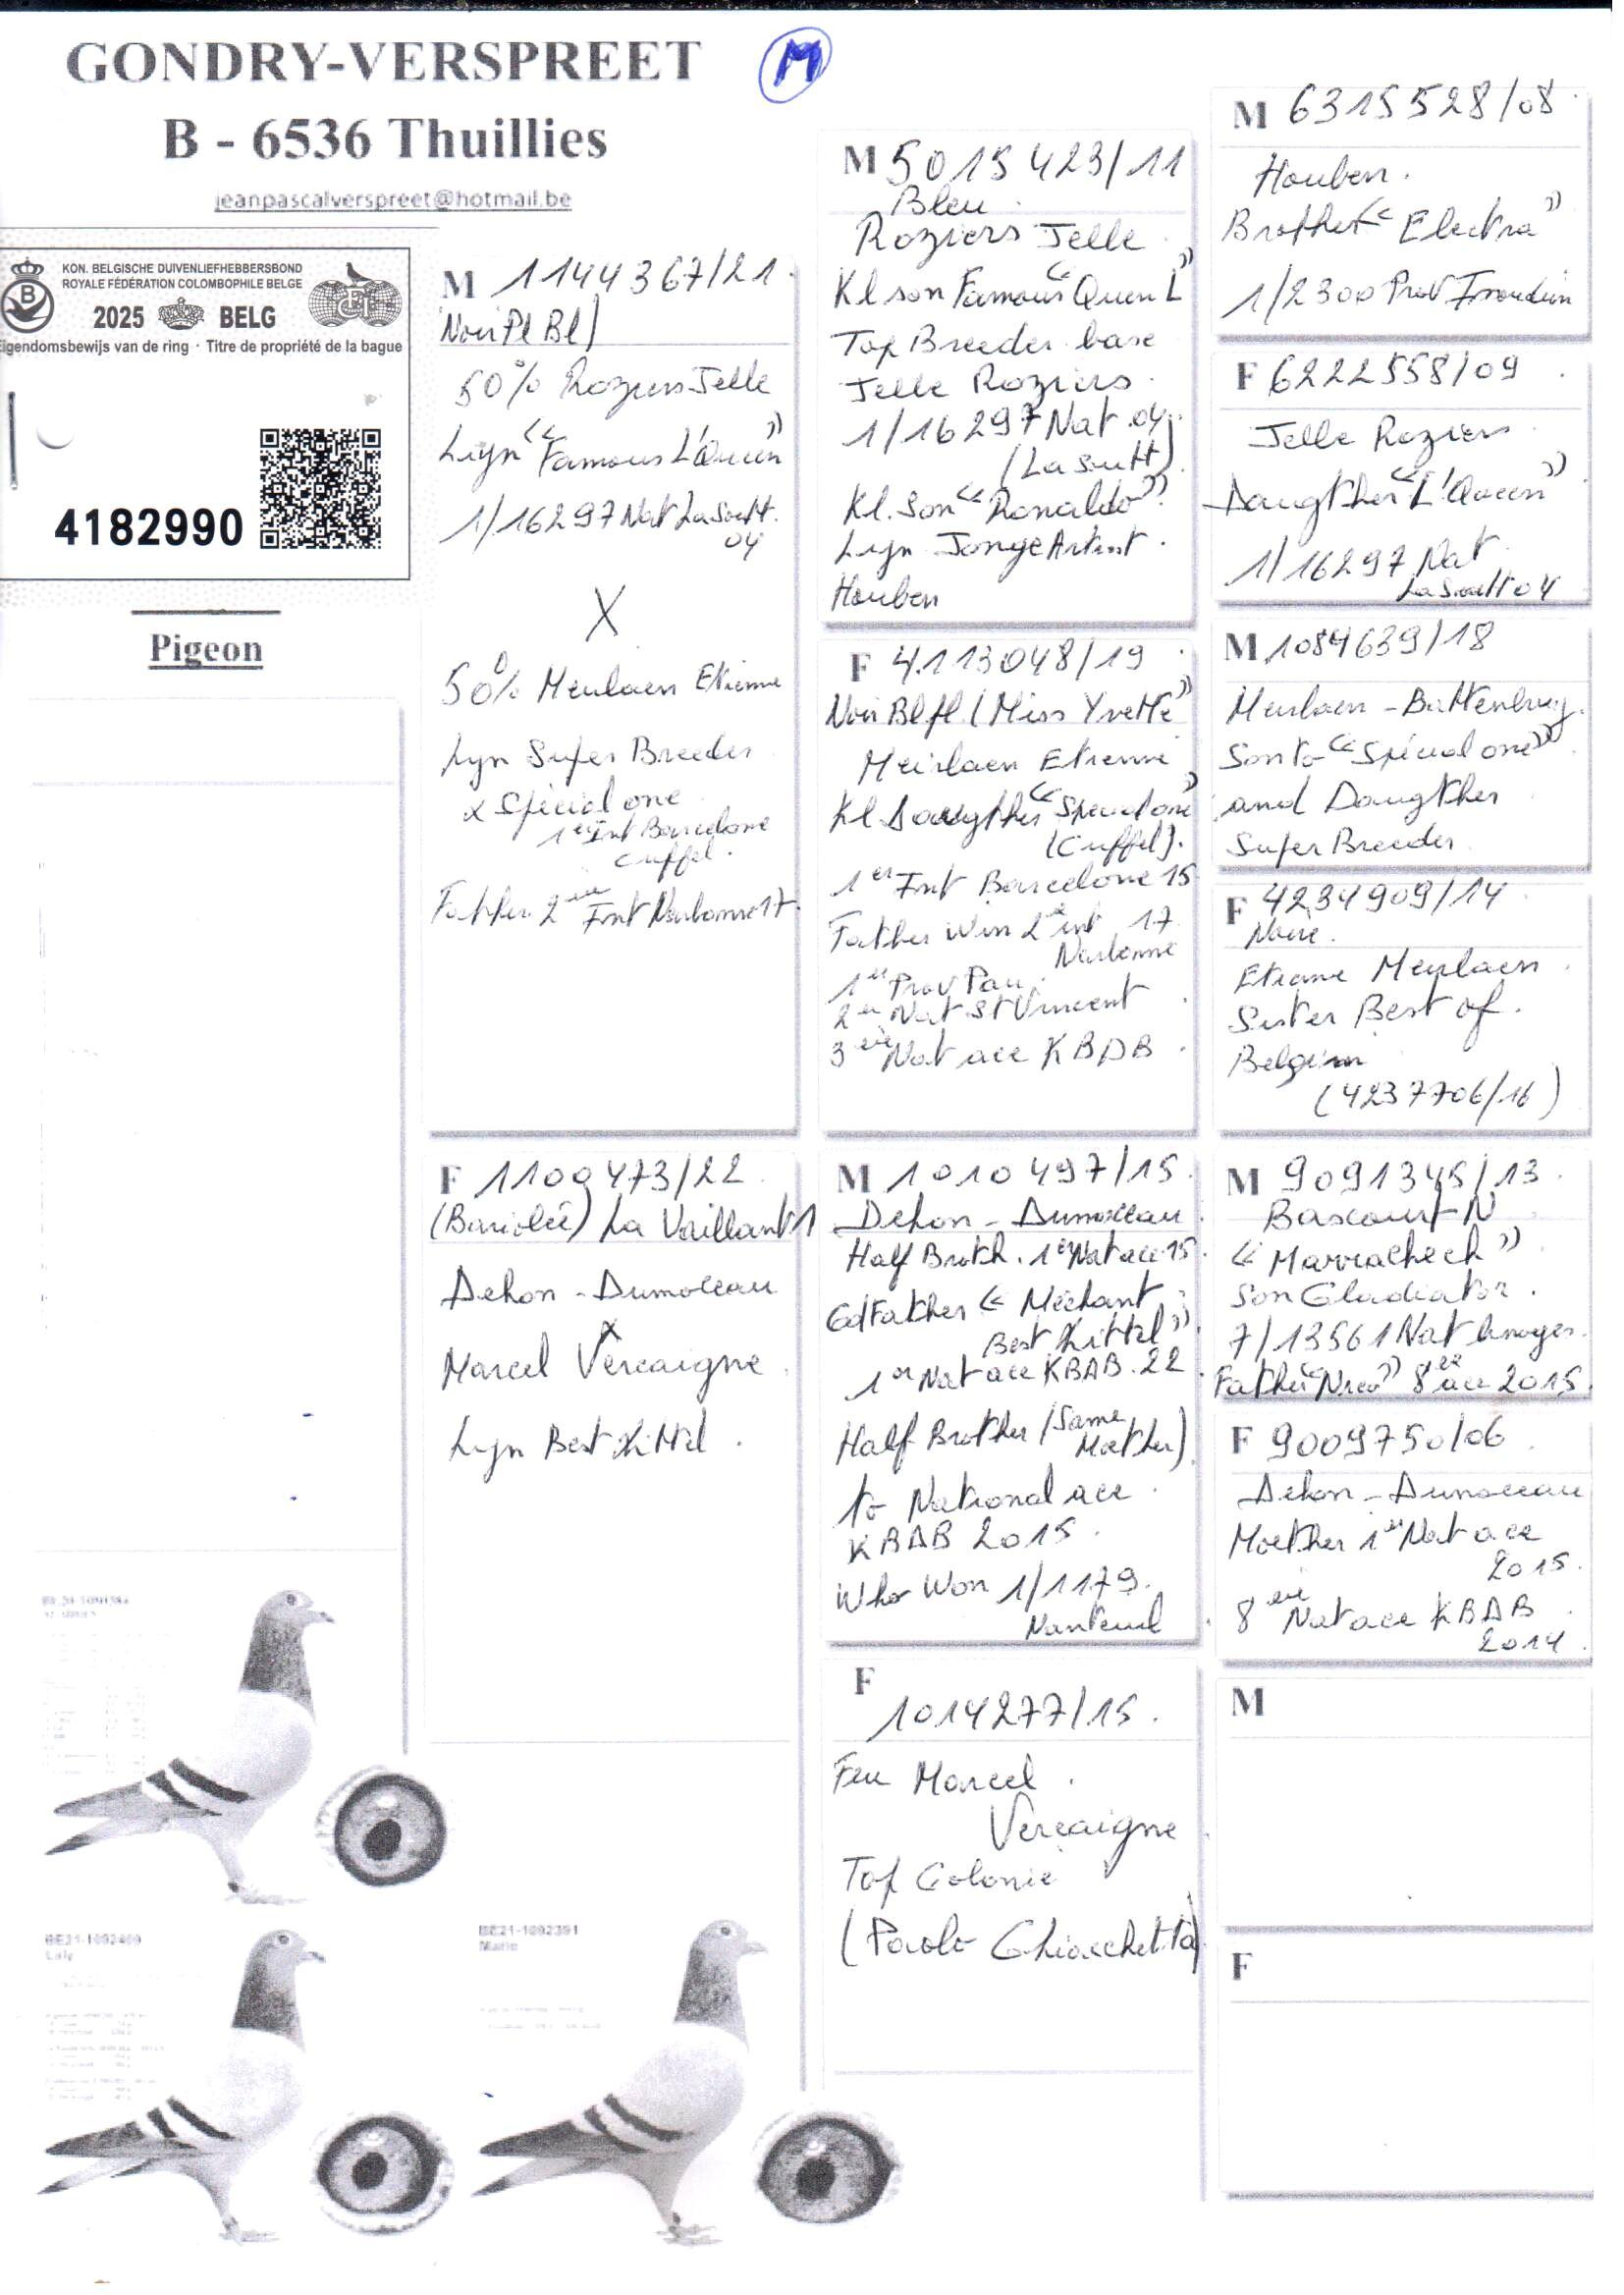 GONDRY-VERSPREET
M
B - 6536 Thuillies
jeanpascalverspreet@hotmail.be
KON. BELGISCHE DUIVENLIEFHEBBERSBOND
ROYALE FÉDÉRATION COLOMBOPHILE BELGE
2025 BELG
Eigendomsbewijs van de ring · Titre de propriété de la bague
4182990
Pigeon
M 1144367/21.
Noir Pl Bl)
50% Roziers Jelle
Lyn "Famous L'Queen"
1/16297 Nat La Sout.
04
X
50% Meulaen Etienne
Lyn Super Breeder
x Spécial one
1er Int Barcelone
Cuffel.
Father 2ème Int Narbonne 17.
F 1100473/22
(Bariolée) La Vaillant 1
Dehon - Dumoceau
X
Marcel Vercaigne
Lyn Best Kittel.
M 5015423/11
Bleu.
Roziers Jelle
Kl son Famous "Queen L"
Top Breeder base
Jelle Roziers.
1/16297 Nat 04.
(La Soutt)
Kl. Son "Ronaldo"
Lyn Jonge Artist.
Houben
F 4113048/19
Noir Bl pl (Miss Yvette"
Meirlaen Etienne
Kl Daugther "Special one"
(Cuffel).
1er Int Barcelone 15
Father Win 2e int 17
Narbonne
1er Prov Pau.
2e Nat St Vincent
3ème Nat ace KBDB.
M 1010497/15.
Dehon - Dumoceau
Half Broth. 1er Nat ace 15.
Gd Father "Méchant
Best Kittel"
1er Nat ace KBDB. 22
Half Brother (Same
Moether)
to National ace.
KBDB 2015.
Who Won 1/1179.
Nanteuil
F
1014277/15.
Feu Marcel.
Vercaigne
Top Colonie
(Paolo Chiacchetta)
M 6315528/08
Houben.
Brother "Electra"
1/2300 Prov Issoudun
F 6222558/09
Jelle Roziers
Daugther "L'Queen"
1/16297 Nat
La Soutt 04
M 1084639/18
Meulaen - Battenburg.
Son to "Spécial one"
and Daugther
Super Breeder
F 4234909/14
Noire.
Etienne Meulaen.
Sister Best of.
Belgium
(4237706/16)
M 9091345/13.
Bascourt N
"Marrachech"
Son Gladiator.
7/13561 Nat Limoges.
Father "Nreo" 8ee ace 2015.
F 9009750/06
Dehon - Dumoceau
Moether 1er Nat ace
2015.
8ème Nat ace KBDB
2014.
M
F
BE21-1092409
Laly
BE21-1092391
Marie